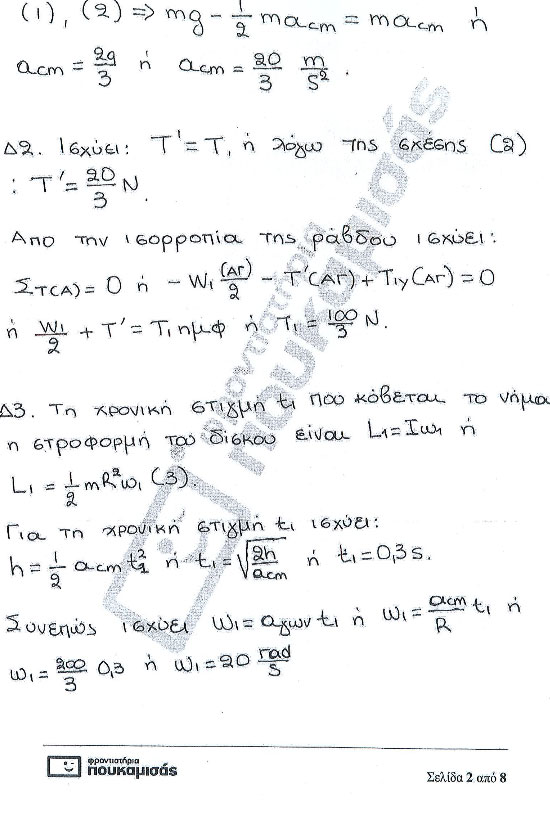 (1), (2) ⇒ mg - 1/2 m acm = m acm ή
acm = 2g/3 ή acm = 20/3 m/s².
Δ2. Ισχύει: T' = T, ή λόγω της σχέσης (2)
: T' = 20/3 N.
Απο την ισορροπία της ράβδου ισχύει:
Στ(Α) = 0 ή - W₁ (ΑΓ)/2 - T'(ΑΓ) + T₁y (ΑΓ) = 0
ή W₁/2 + T' = T₁ ημφ ή T₁ = 100/3 N.
Δ3. Τη χρονική στιγμή t₁ που κόβεται το νήμα
η στροφορμή του δίσκου είναι L₁ = Iω₁ ή
L₁ = 1/2 mR²ω₁ (3).
Για τη χρονική στιγμή t₁ ισχύει:
h = 1/2 acm t₁² ή t₁ = √(2h/acm) ή t₁ = 0,3 s.
Συνεπώς ισχύει ω₁ = αγων t₁ ή ω₁ = acm/R t₁ ή
ω₁ = 200/3 0,3 ή ω₁ = 20 rad/s
φροντιστήρια
πουκαμισάς
φροντιστήρια
πουκαμισάς
Σελίδα 2 από 8